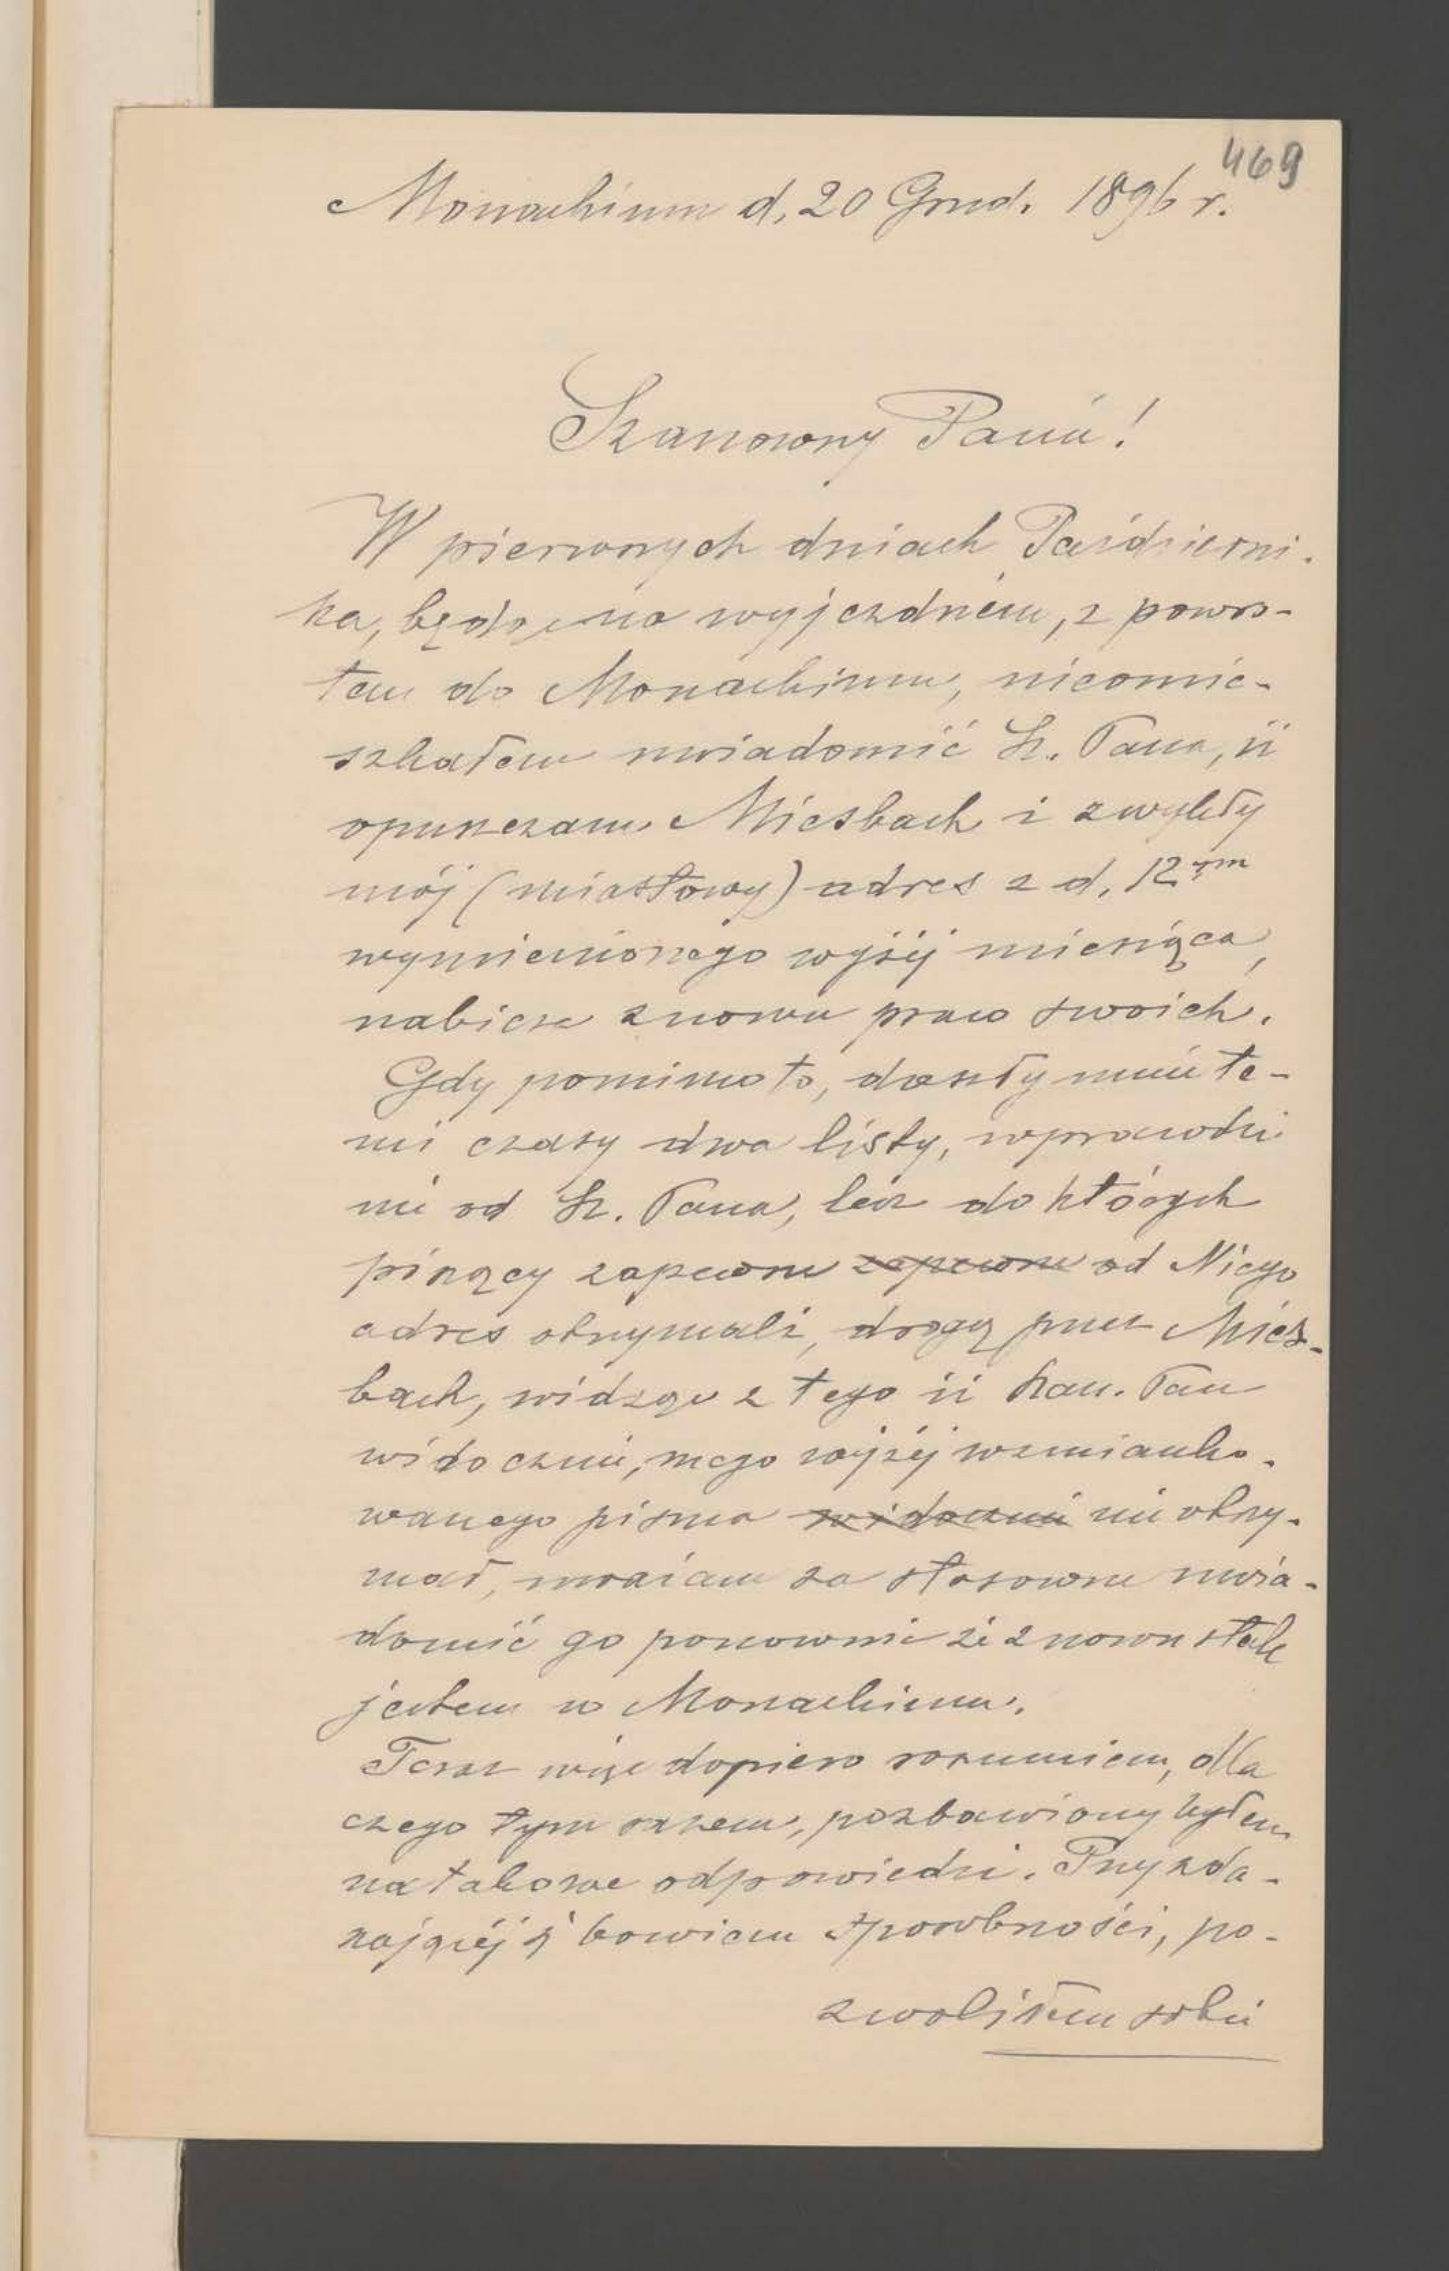 469
Monachium d. 20 Grud. 1896 r.
Szanowny Panie!
W pierwszych dniach Październi-
ka, będąc na wyjezdnem, z powro-
tem do Monachium, nieomie-
szkałem uwiadomić Sz. Pana, iż
opuszczam Miesbach i zwykły
mój (miastowy) adres z d. 12ym
wymienionego wyżéj miesiąca,
nabierze znowu praw swoich.
Gdy pomimo to, doszły mnie te-
mi czasy dwa listy, wprawdzie
nie od Sz. Pana, lecz do których
piszący zapewne zapewne od Niego
adres otrzymali, drogą przez Mies-
bach, widzę z tego iż Szan. Pan
widocznie, mego wyżéj wzmianko-
wanego pisma widocznie nie otrzy-
mał, uważam za stosowne uwia-
domić go ponownie że znowu stale
jestem w Monachium.
Teraz więc dopiero rozumiem, dla
czego tym razem, pozbawiony byłem
na takowe odpowiedzi. Przy zda-
rzającéj się bowiem sposobności, po-
zwoliłem sobie